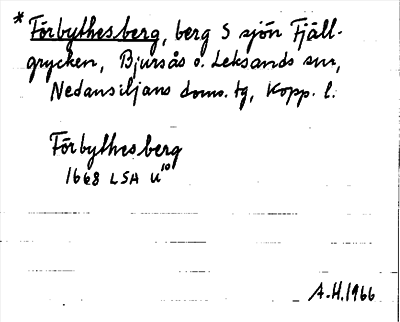 * Förbythesberg, berg S sjön Fjäll-
grycken, Bjursås o. Leksands snr,
Nedansiljans doms. tg, Kopp. l.
Förbythesberg
1668 LSA U¹⁰
A.H. 1966